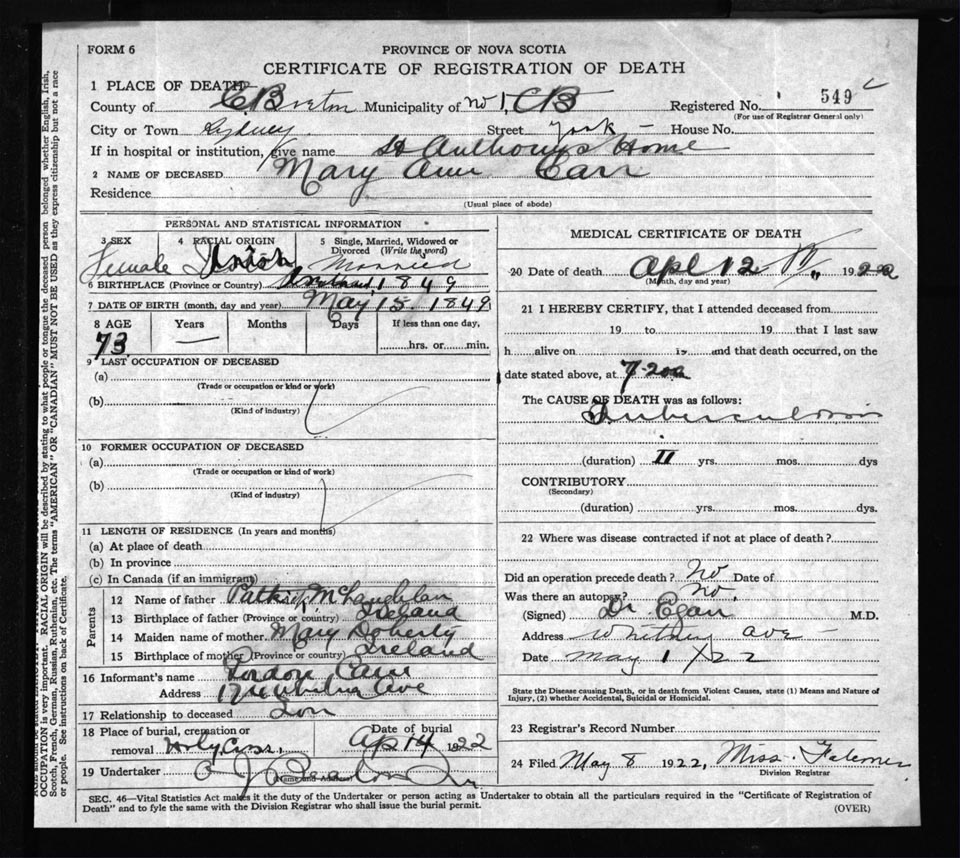 FORM 6
PROVINCE OF NOVA SCOTIA
CERTIFICATE OF REGISTRATION OF DEATH
1 PLACE OF DEATH
County of C. Breton Municipality of No 1, CB Registered No. 549
(For use of Registrar General only)
City or Town Sydney Street York House No.
If in hospital or institution, give name St Anthony's Home
2 NAME OF DECEASED Mary Ann Carr
Residence
(Usual place of abode)
PERSONAL AND STATISTICAL INFORMATION
3 SEX 4 RACIAL ORIGIN 5 Single, Married, Widowed or
Divorced (Write the word)
Female Irish Married
6 BIRTHPLACE (Province or Country) 1849
7 DATE OF BIRTH (month, day and year) May 15, 1849
8 AGE Years Months Days If less than one day,
73 hrs. or min.
9 LAST OCCUPATION OF DECEASED
(a)
(Trade or occupation or kind of work)
(b)
(Kind of industry)
10 FORMER OCCUPATION OF DECEASED
(a)
(Trade or occupation or kind of work)
(b)
(Kind of industry)
11 LENGTH OF RESIDENCE (In years and months)
(a) At place of death
(b) In province
(c) In Canada (if an immigrant)
Parents
12 Name of father Patrick McLaughlan
13 Birthplace of father (Province or country) Ireland
14 Maiden name of mother Mary Doherty
15 Birthplace of mother (Province or country) Ireland
16 Informant's name Carr
Address Ave
17 Relationship to deceased Son
18 Place of burial, cremation or Date of burial
removal Holy Cross Ap 14 1922
19 Undertaker
(Name and Address)
MEDICAL CERTIFICATE OF DEATH
20 Date of death Apl 12 1922
(Month, day and year)
21 I HEREBY CERTIFY, that I attended deceased from
19 to 19 that I last saw
h alive on 19 and that death occurred, on the
date stated above, at 7.20a
The CAUSE OF DEATH was as follows:
Tuberculosis
(duration) II yrs. mos. dys
CONTRIBUTORY
(Secondary)
(duration) yrs. mos. dys.
22 Where was disease contracted if not at place of death?
Did an operation precede death? No Date of
Was there an autopsy? No.
(Signed) Dr. Egan M.D.
Address Whitney Ave
Date May 1 22
State the Disease causing Death, or in death from Violent Causes, state (1) Means and Nature of
Injury, (2) whether Accidental, Suicidal or Homicidal.
23 Registrar's Record Number
24 Filed May 8 1922, Miss
Division Registrar
SEC. 46—Vital Statistics Act makes it the duty of the Undertaker or person acting as Undertaker to obtain all the particulars required in the "Certificate of Registration of
Death" and to fyle the same with the Division Registrar who shall issue the burial permit.
(OVER)
OCCUPATION is very important. RACIAL ORIGIN will be described by stating to what people or tongue the deceased person belonged whether English, Irish,
Scotch, French, German, Russian, Ruthenian, etc. The terms "AMERICAN" OR "CANADIAN" MUST NOT BE USED as they express citizenship but not a race
or people. See instructions on back of Certificate.